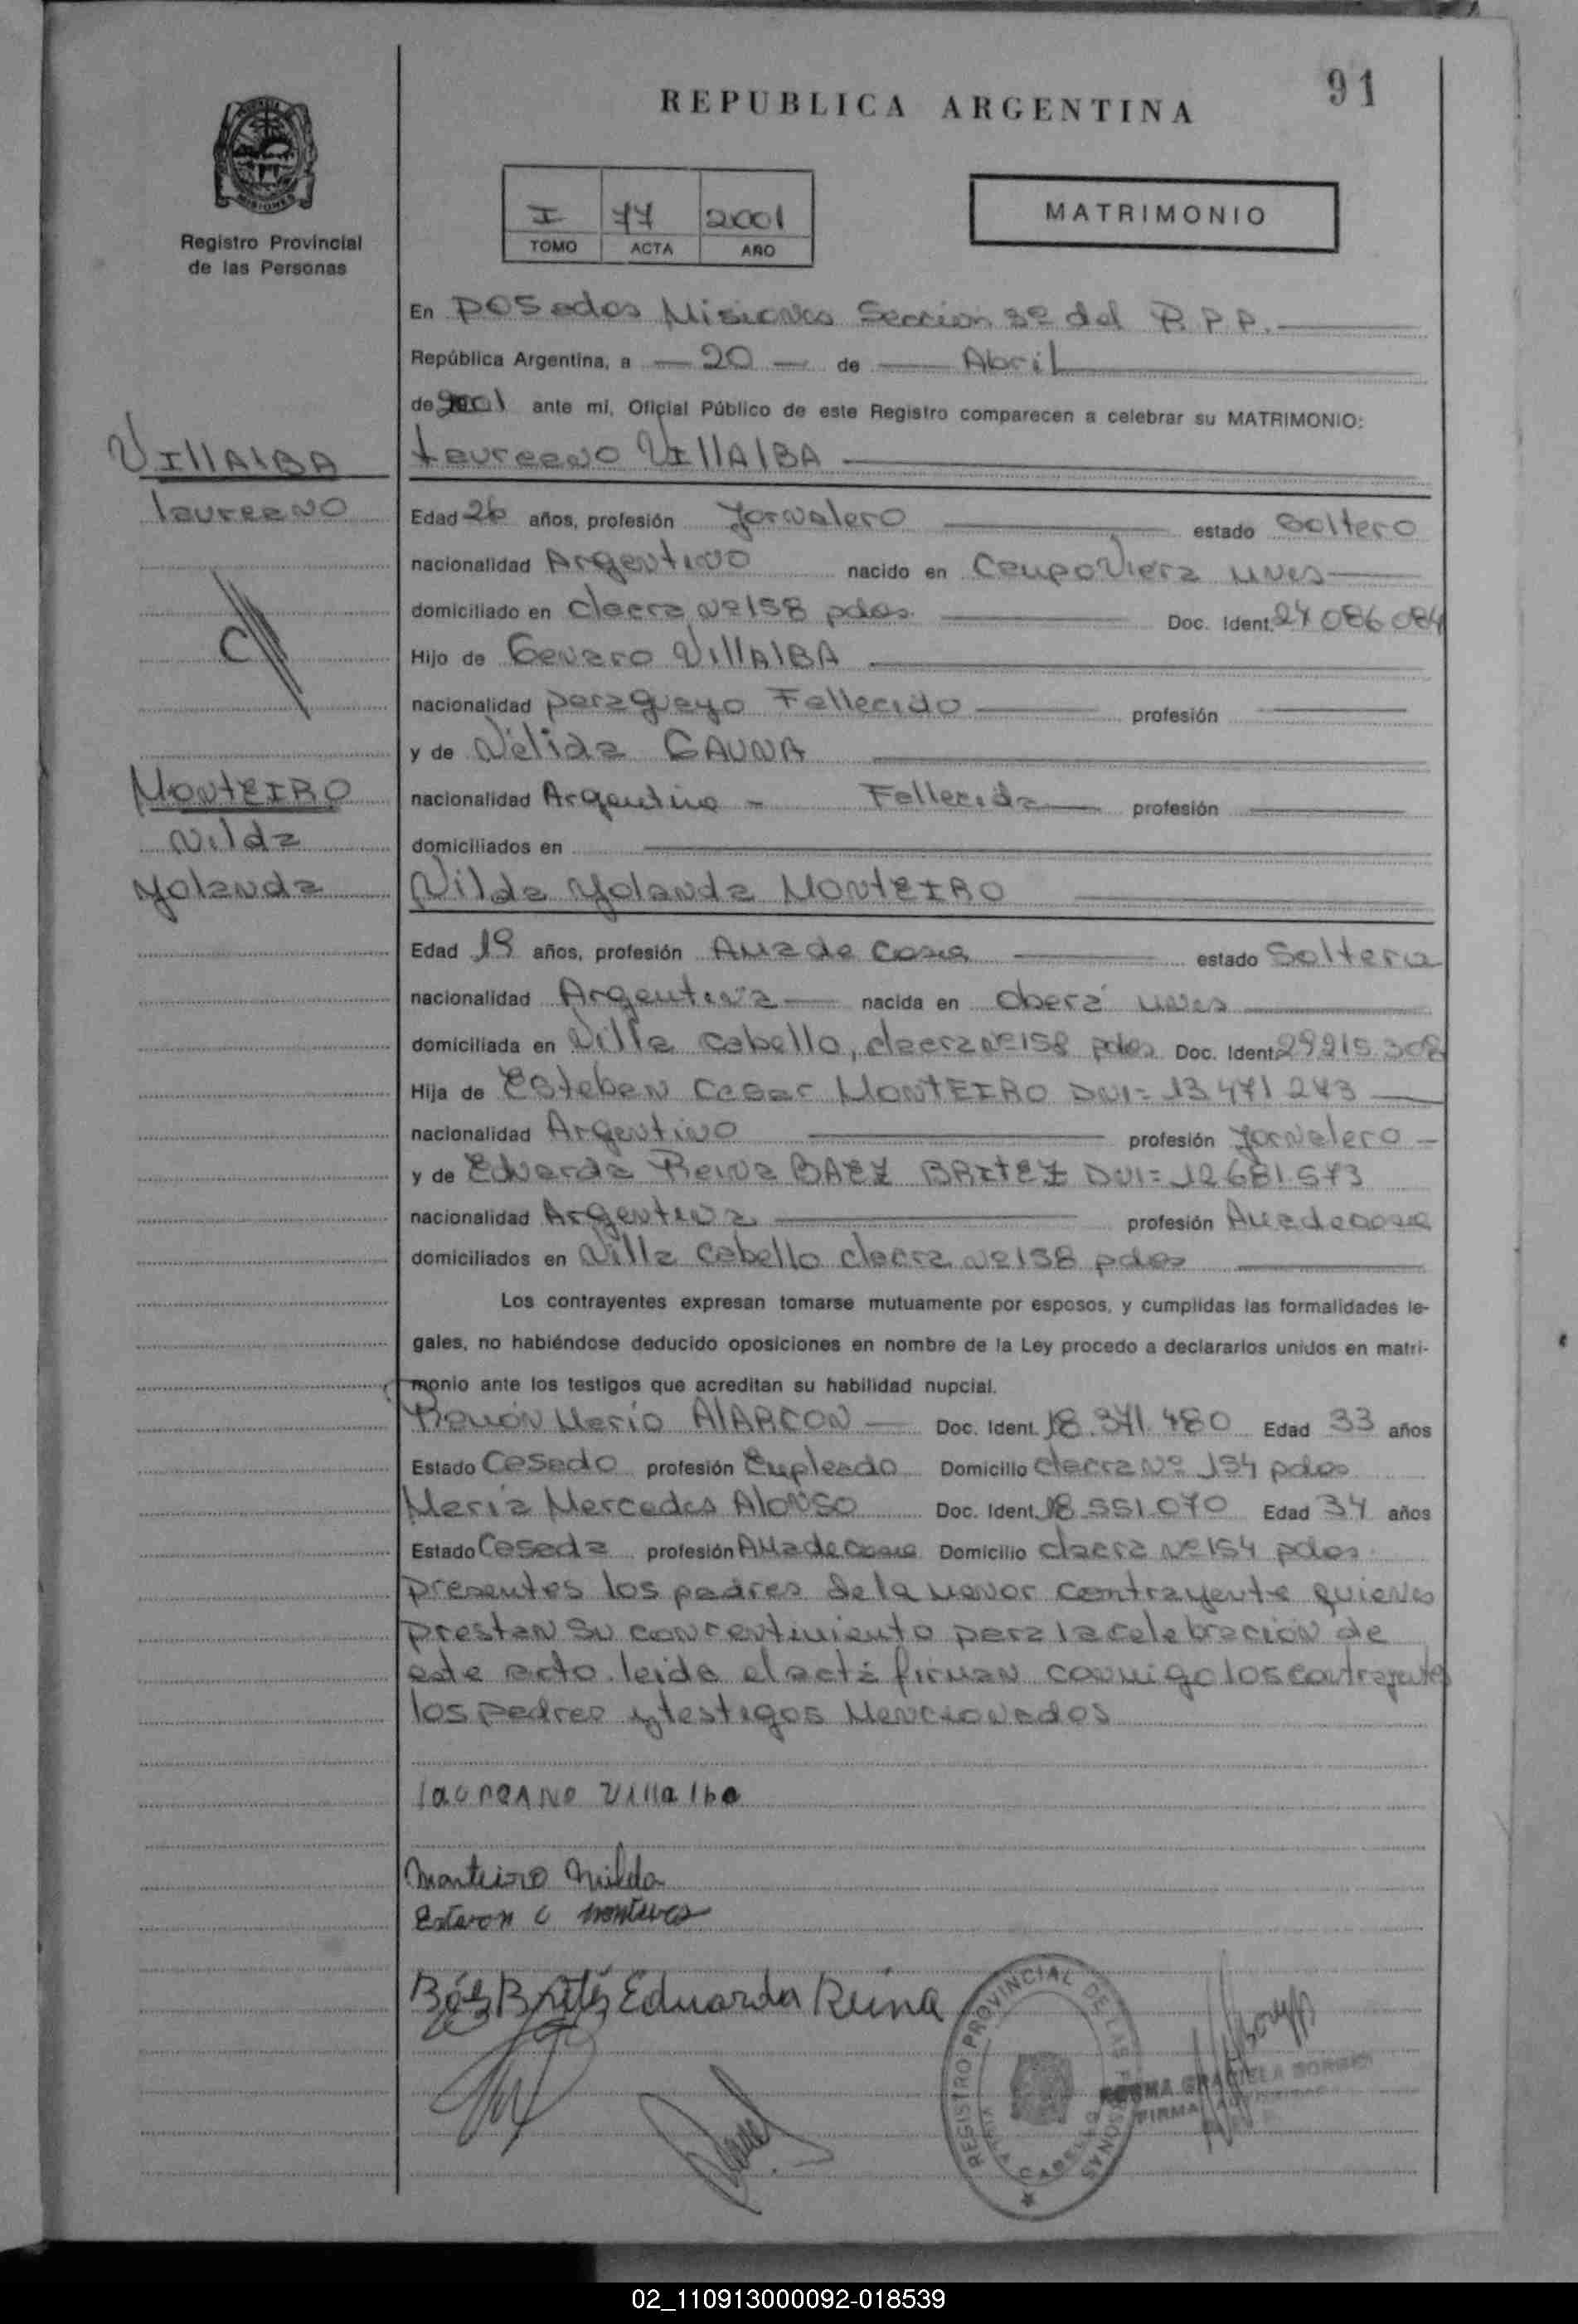 91
REPUBLICA ARGENTINA
MISIONES
Registro Provincial
de las Personas
I 77 2001
TOMO ACTA AÑO
MATRIMONIO
En Posadas Misiones Seccion 3º del R.P.P.
República Argentina, a 20 de Abril
de 2001 ante mí, Oficial Público de este Registro comparecen a celebrar su MATRIMONIO:
VIllAlBA
Laureano
Laureano VIllAlBA
Edad 26 años, profesión Jornalero estado Soltero
nacionalidad Argentino nacido en Campo Viera Mnes
domiciliado en chacra Nº 158 pdas. Doc. Ident. 24 086 084
Hijo de Genaro VillAlBA
nacionalidad paraguayo Fallecido profesión
y de Nélida GAUNA
MontEIRO
Nilda
Yolanda
nacionalidad Argentina - Fallecida profesión
domiciliados en
Nilda Yolanda MontEIRO
Edad 19 años, profesión Ama de Casa estado Soltera
nacionalidad Argentina nacida en Oberá Mnes
domiciliada en Villa Cabello, chacra Nº 158 pdas Doc. Ident. 29915 308
Hija de Esteban Cesar MONTEIRO DNI= 13 471 273
nacionalidad Argentino profesión Jornalero
y de Eduarda Reina BAEZ BRITEZ DNI= 12 681.573
nacionalidad Argentina profesión Ama de casa
domiciliados en Villa Cabello chacra Nº 158 pdas
Los contrayentes expresan tomarse mutuamente por esposos, y cumplidas las formalidades le-
gales, no habiéndose deducido oposiciones en nombre de la Ley procedo a declararlos unidos en matri-
monio ante los testigos que acreditan su habilidad nupcial.
Ramón Mario AlARCON Doc. Ident. 18.371.480 Edad 33 años
Estado Casado profesión Empleado Domicilio chacra Nº 154 pdas
María Mercedes AloNSO Doc. Ident. 18 551.070 Edad 34 años
Estado Casada profesión Ama de Casa Domicilio chacra Nº 154 pdas.
presentes los padres de la menor contrayente quienes
prestan su concentimiento para la celebración de
este acto. leida el acta firman conmigo los contrayentes
los padres y testigos Mencionados
laureano Villalba
Monteiro Nilda
Estevan C Monteiro
Báez Brítez Eduarda Reina
REGISTRO PROVINCIAL DE LAS PERSONAS
VILLA CABELLO
GRACIELA
FIRMA
02_110913000092-018539